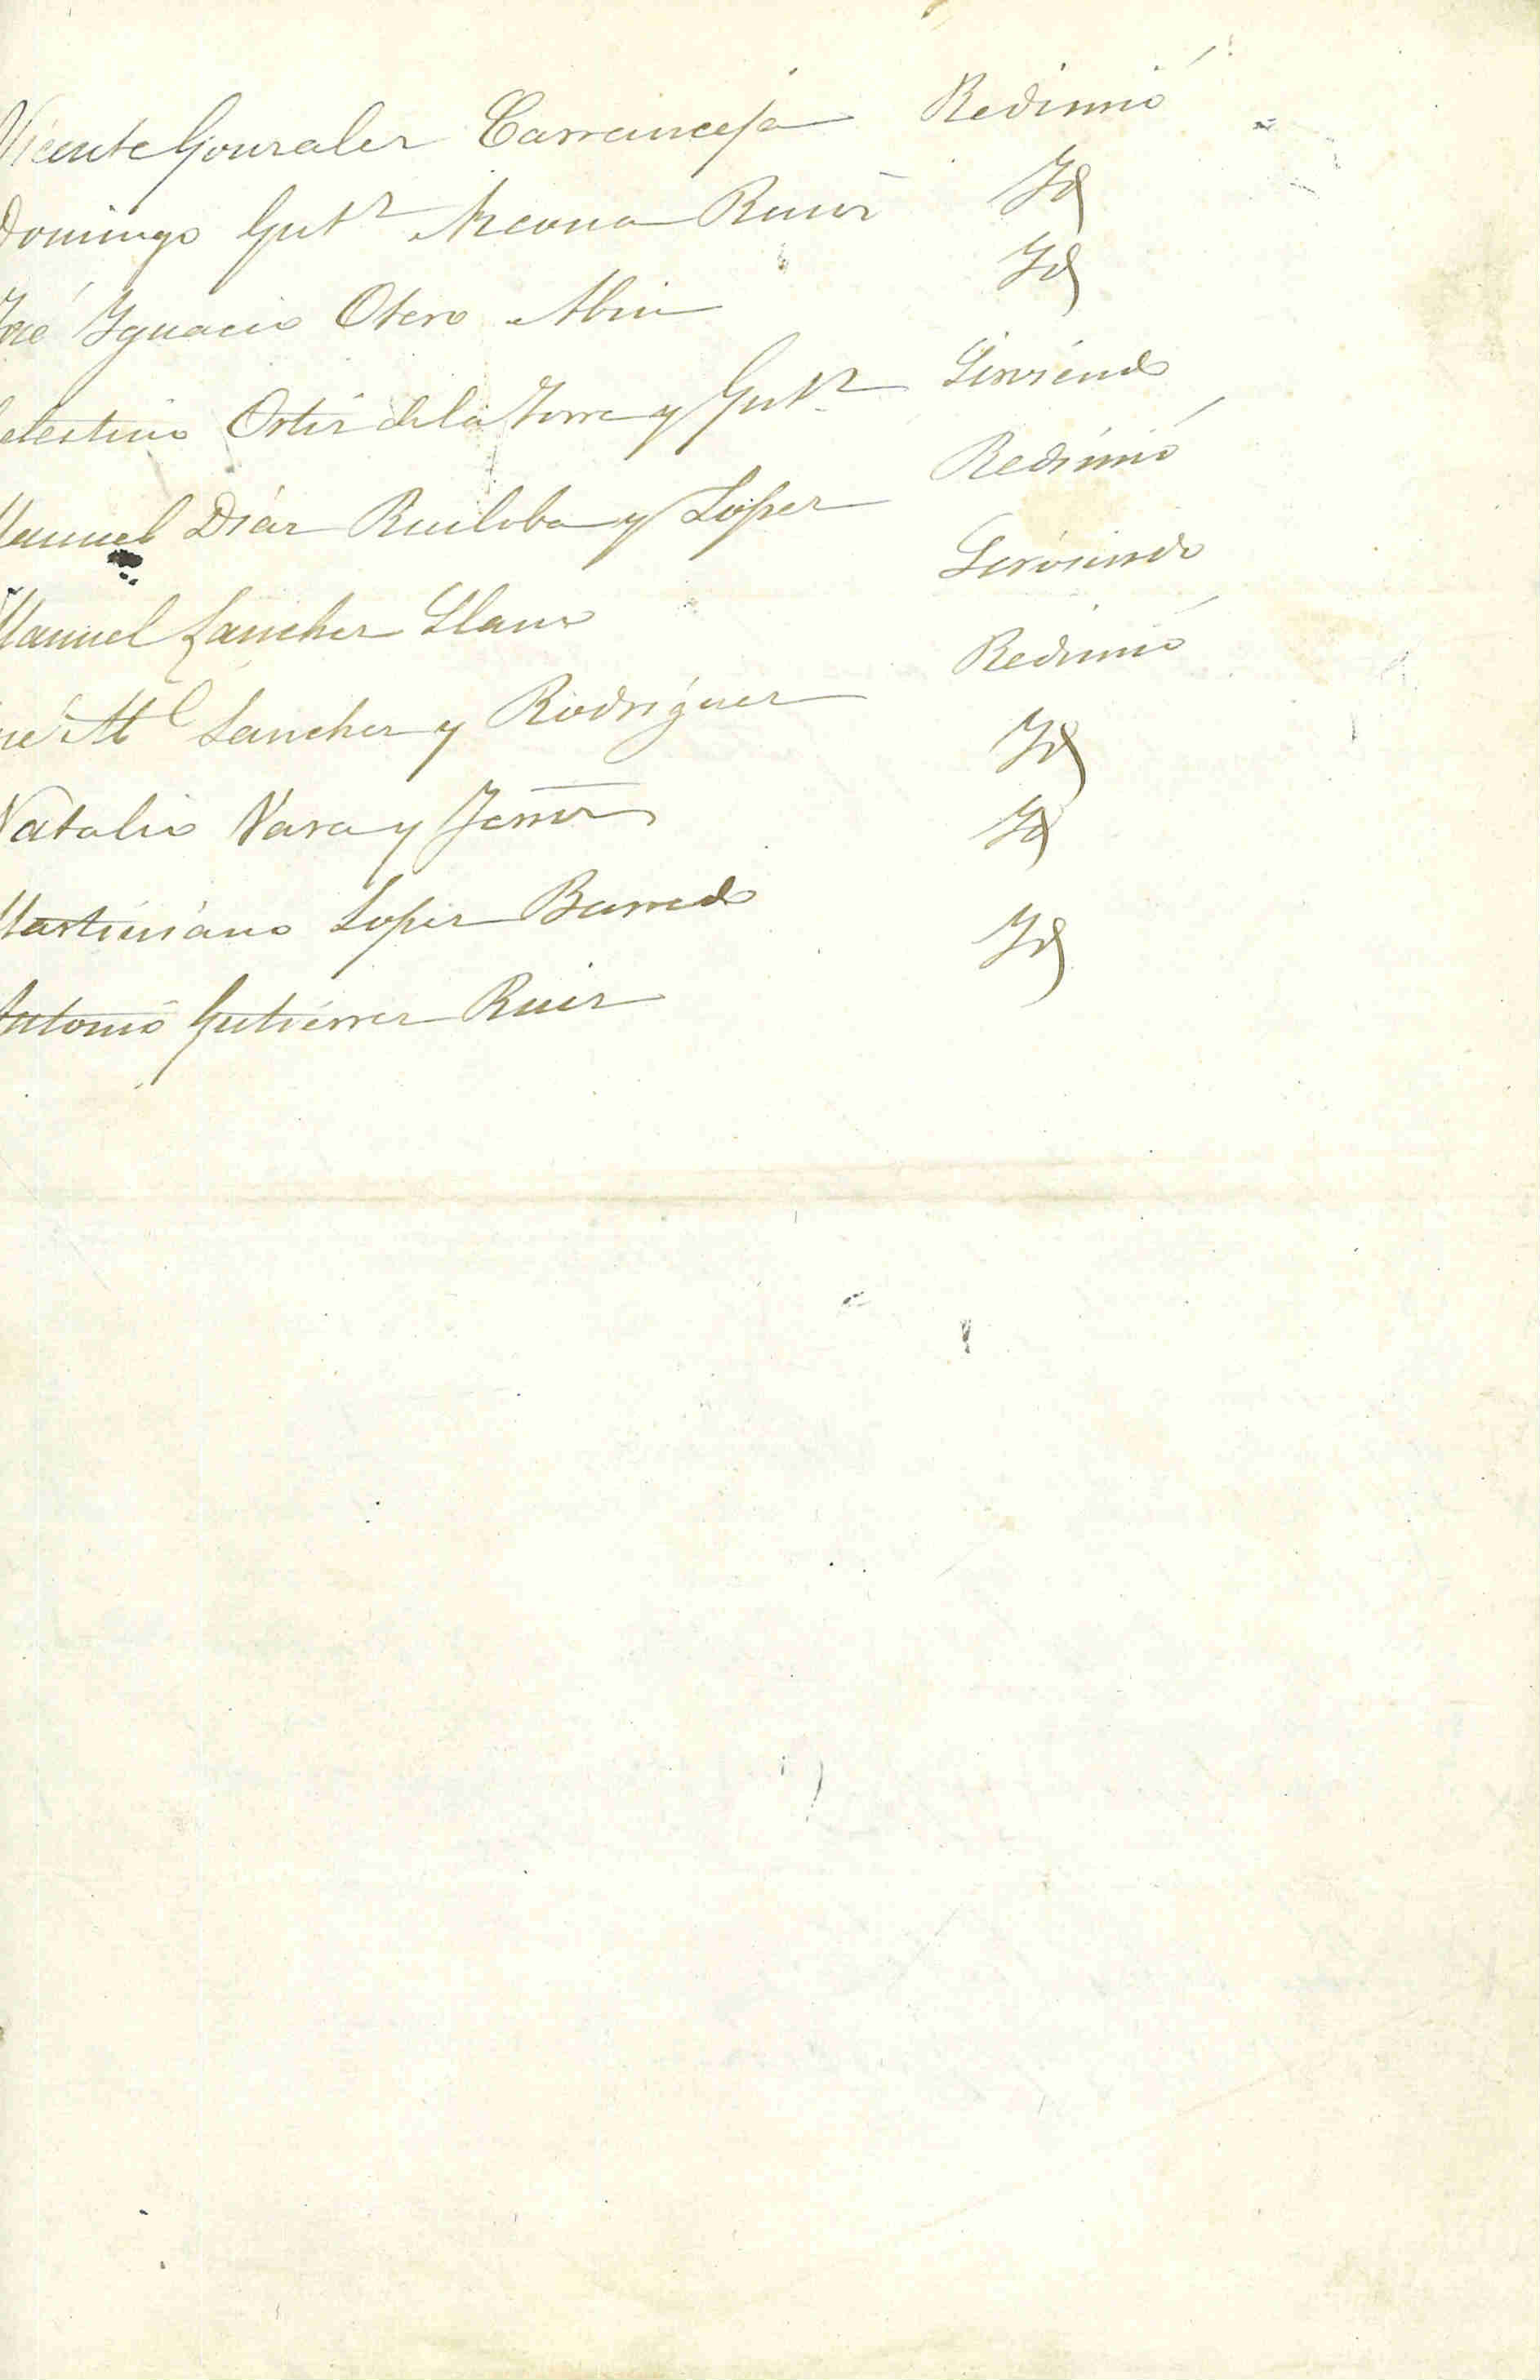 Vicente Gonzalez Carranceja Redimió
Domingo Gutz Azcona Ruiz Id
José Ygnacio Otero Abin Id
elestino Ortiz de la Torre y Gutz Sirviendo
Manuel Diáz Ruiloba y Lopez Redimió
Manuel Sanchez Llano Sirviendo
sé Ml Sanchez y Rodríguez Redimió
Natalio Vara y Id
Martiniano Lopez Barreda Id
Antonio Gutiérrez Ruiz Id